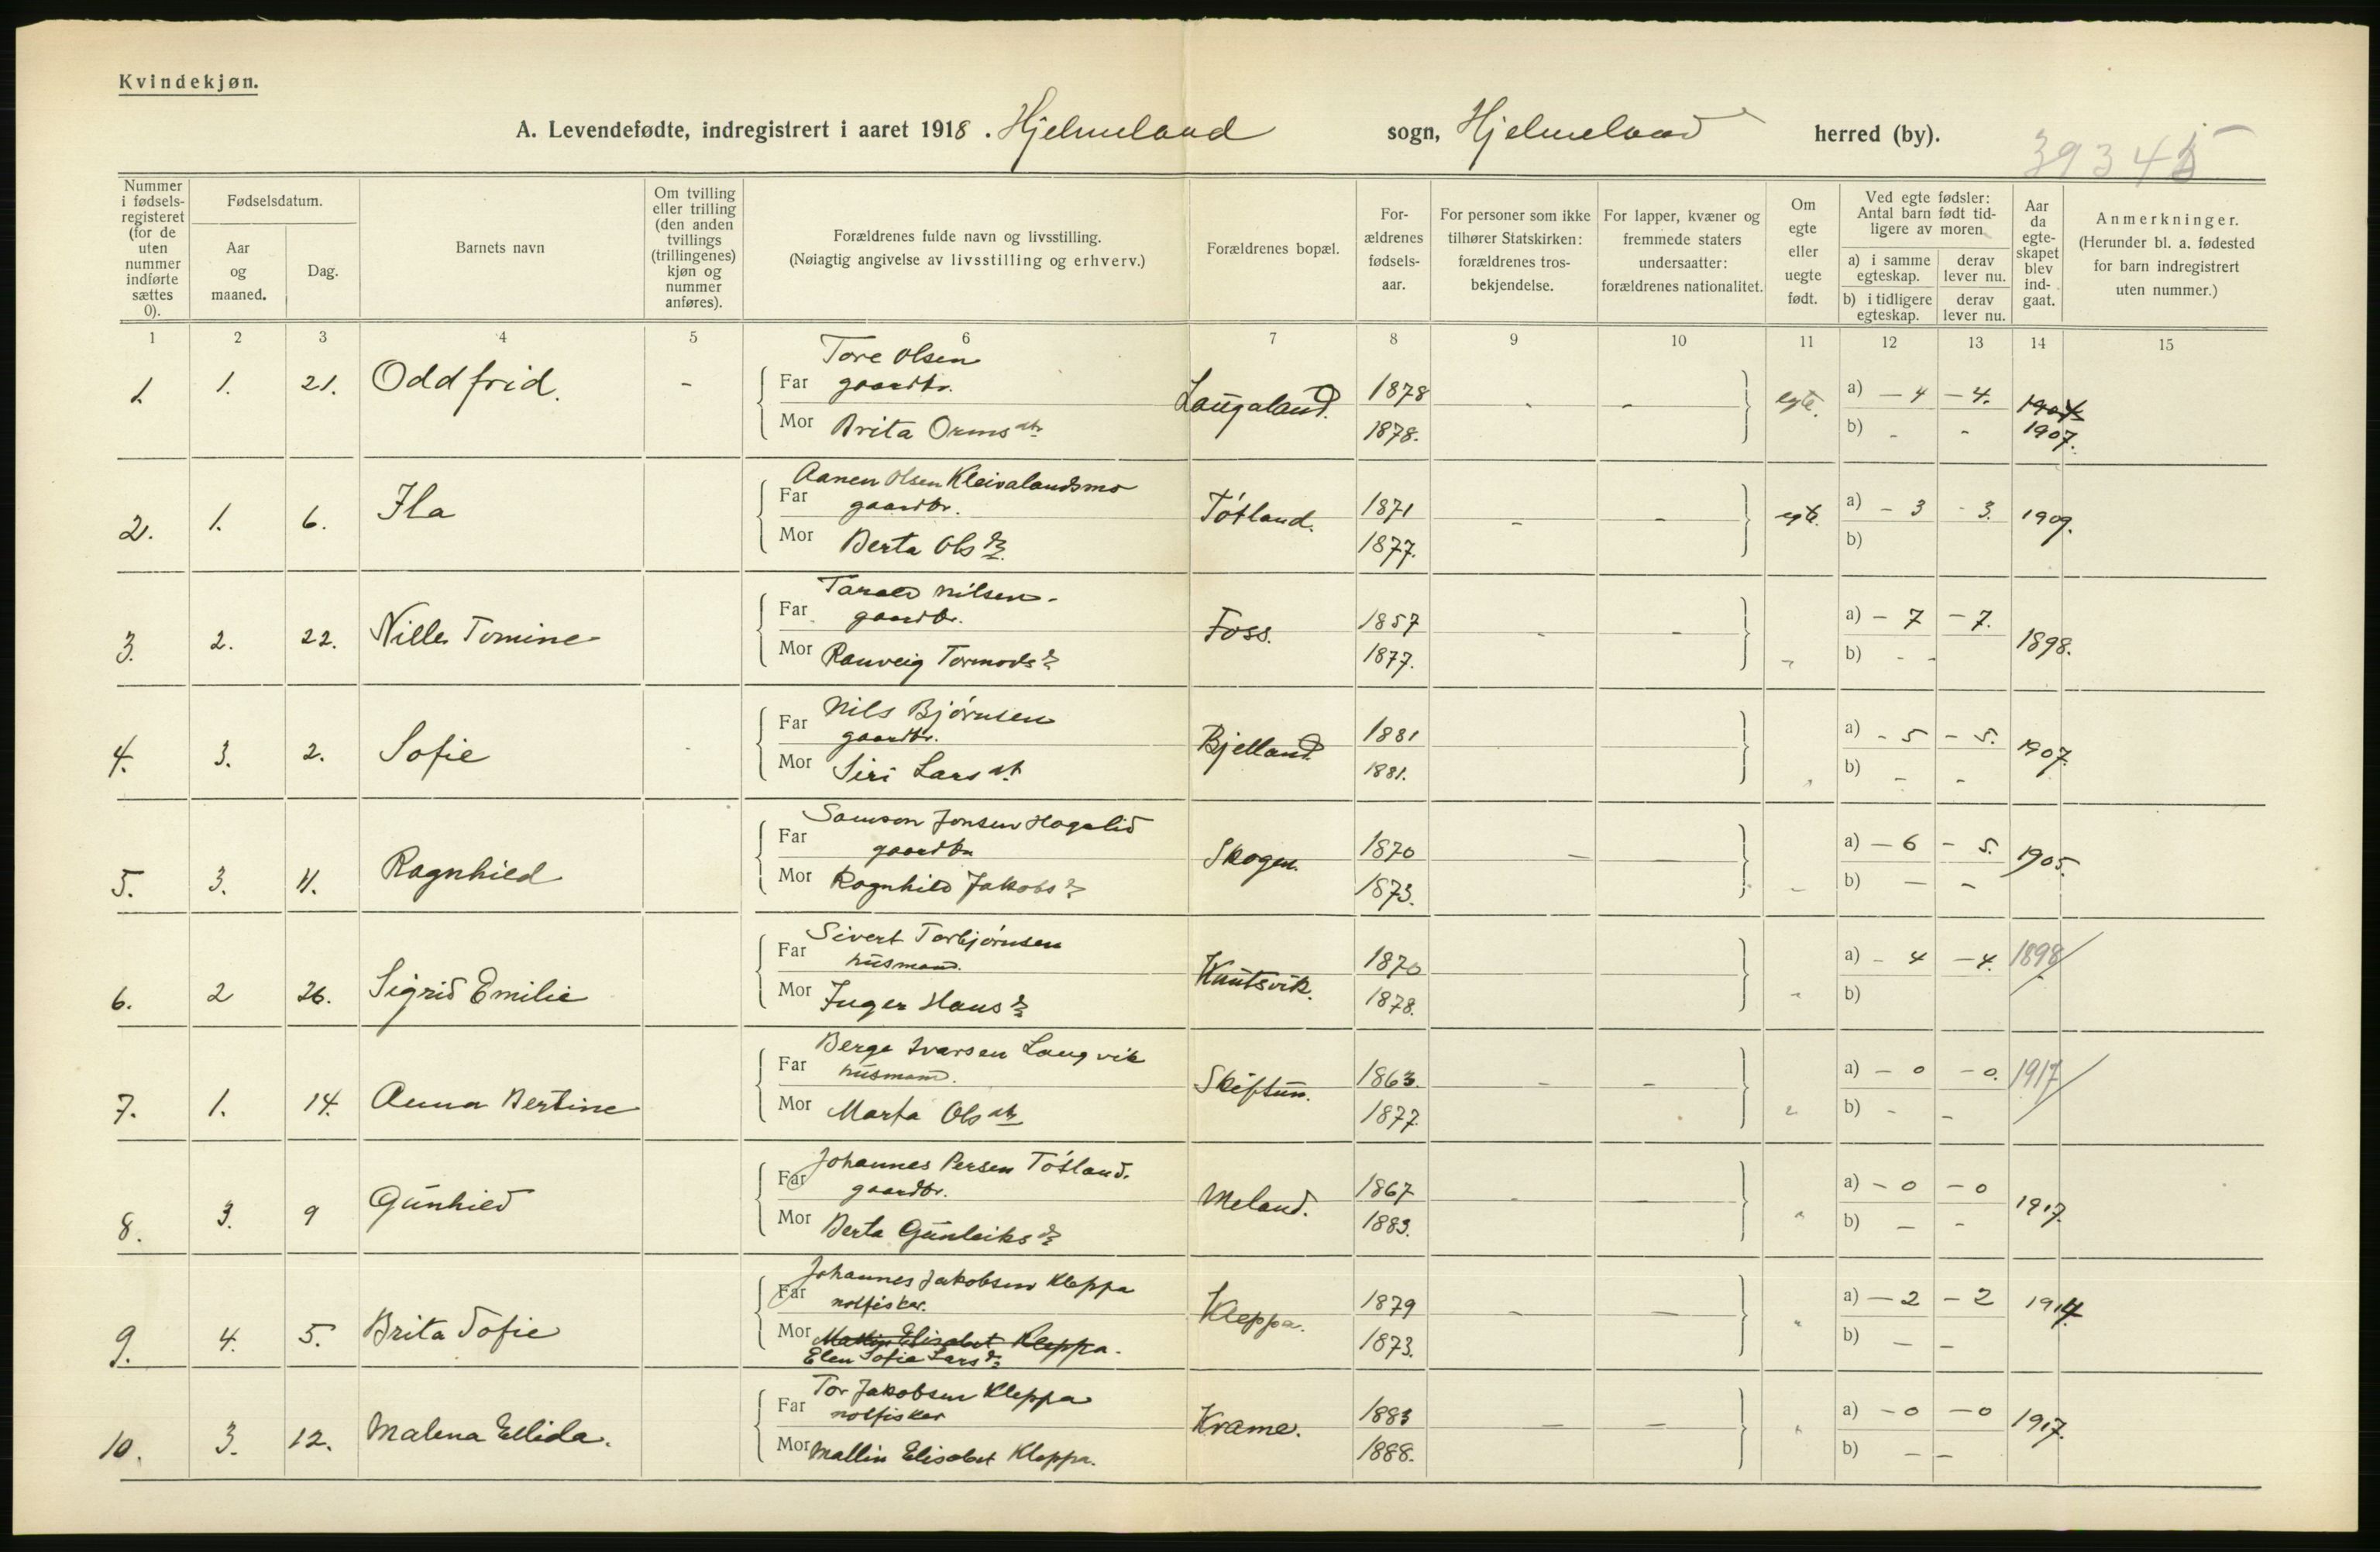 Kvindekjøn.
A. Levendefødte, indregistrert i aaret 1918. Hjelmeland sogn, Hjelmeland herred (by).
3934
Nummer i fødselsregisteret (for de uten nummer indførte sættes 0).
Fødselsdatum.
Aar og maaned.
Dag.
Barnets navn
Om tvilling eller trilling (den anden tvillings (trillingenes) kjøn og nummer anføres).
Forældrenes fulde navn og livsstilling.
(Nøiagtig angivelse av livsstilling og erhverv.)
Forældrenes bopæl.
Forældrenes fødselsaar.
For personer som ikke tilhører Statskirken: forældrenes trosbekjendelse.
For lapper, kvæner og fremmede staters undersaatter: forældrenes nationalitet.
Om egte eller uegte født.
Ved egte fødsler: Antal barn født tidligere av moren
a) i samme egteskap.
derav lever nu.
b) i tidligere egteskap.
derav lever nu.
Aar da egteskapet blev indgaat.
Anmerkninger.
(Herunder bl. a. fødested for barn indregistrert uten nummer.)
1 2 3 4 5 6 7 8 9 10 11 12 13 14 15
Tore Olsen
1. 1. 21. Oddfrid. - Far gaardbr. Laugaland. 1878 - - egte. a) - 4 - 4. 1904
Mor Brita Ormsdtr 1878. b) - - 1907.
Aanen Olsen Kleivalandsmo
2. 1. 6. Ila Far gaardbr. Tøtland. 1871 - - egte. a) - 3 - 3. 1909.
Mor Berta Olsdr. 1877. b)
Tarald Nilsen -
3. 2. 22. Nille Tomine Far gaardbr. Foss. 1857 - - " a) - 7 - 7. 1898.
Mor Ranveig Tormodsdr 1877. b) - -
Nils Bjørnsen
4. 3. 2. Sofie Far gaardbr. Bjelland. 1881 " a) - 5 - 5. 1907.
Mor Siri Larsdt 1881. b) - -
Samson Jonsen Hagalid
5. 3. 11. Ragnhild Far gaardbr Skogen. 1870 - - " a) - 6 - 5. 1905.
Mor Ragnhild Jakobsdr 1873. b) - -
Sivert Torbjørnsen
6. 2 26. Sigrid Emilie Far husmand. Knutsvik. 1870 " a) - 4 - 4. 1898
Mor Inger Hansdr 1878. b)
Berge Ivarsen Laugvik
7. 1. 14. Anna Bertine Far husmand. Skiftun. 1863. - - " a) - 0 - 0. 1917
Mor Marta Olsdtr 1877. b) - -
Johannes Persen Tøtland.
8. 3. 9 Gunhild Far gaardbr. Meland. 1867 - - " a) - 0 - 0 1917.
Mor Berta Gunleiksdr 1883. b) - -
Johannes Jakobsen Kleppa
9. 4. 5. Brita Sofie Far notfisker. Kleppa. 1879 - - " a) - 2 - 2 1914.
Mor Mallin Elisabet Kleppa. 1873. b) - -
Elen Sofie Larsdr
Tor Jakobsen Kleppa
10. 3. 12. Malena Ellida. Far notfisker Krame. 1883 - - " a) - 0 - 0 1917.
Mor Mallin Elisabet Kleppa. 1888. b) - -